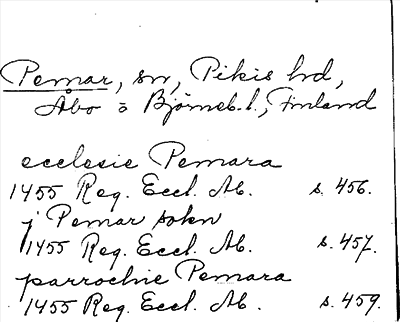 Pemar, sn, Pikis hd,
Åbo o Björneb. l., Finland
ecclesie Pemara
1455 Reg. Eccl. Ab. s. 456.
j Pemar sokn
1455 Reg. Eccl. Ab. s. 457.
parrochie Pemara
1455 Reg. Eccl. Ab. s. 459.